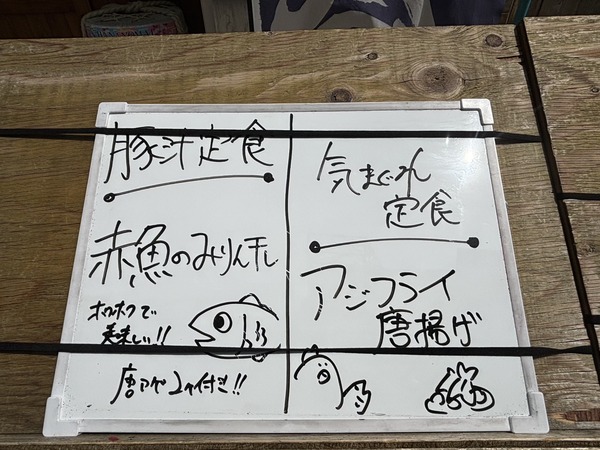 豚汁定食
赤魚のみりん干し
ホクホクで
美味しい!!
唐アゲ2ヶ付き!!
気まぐれ
定食
アジフライ
唐揚げ